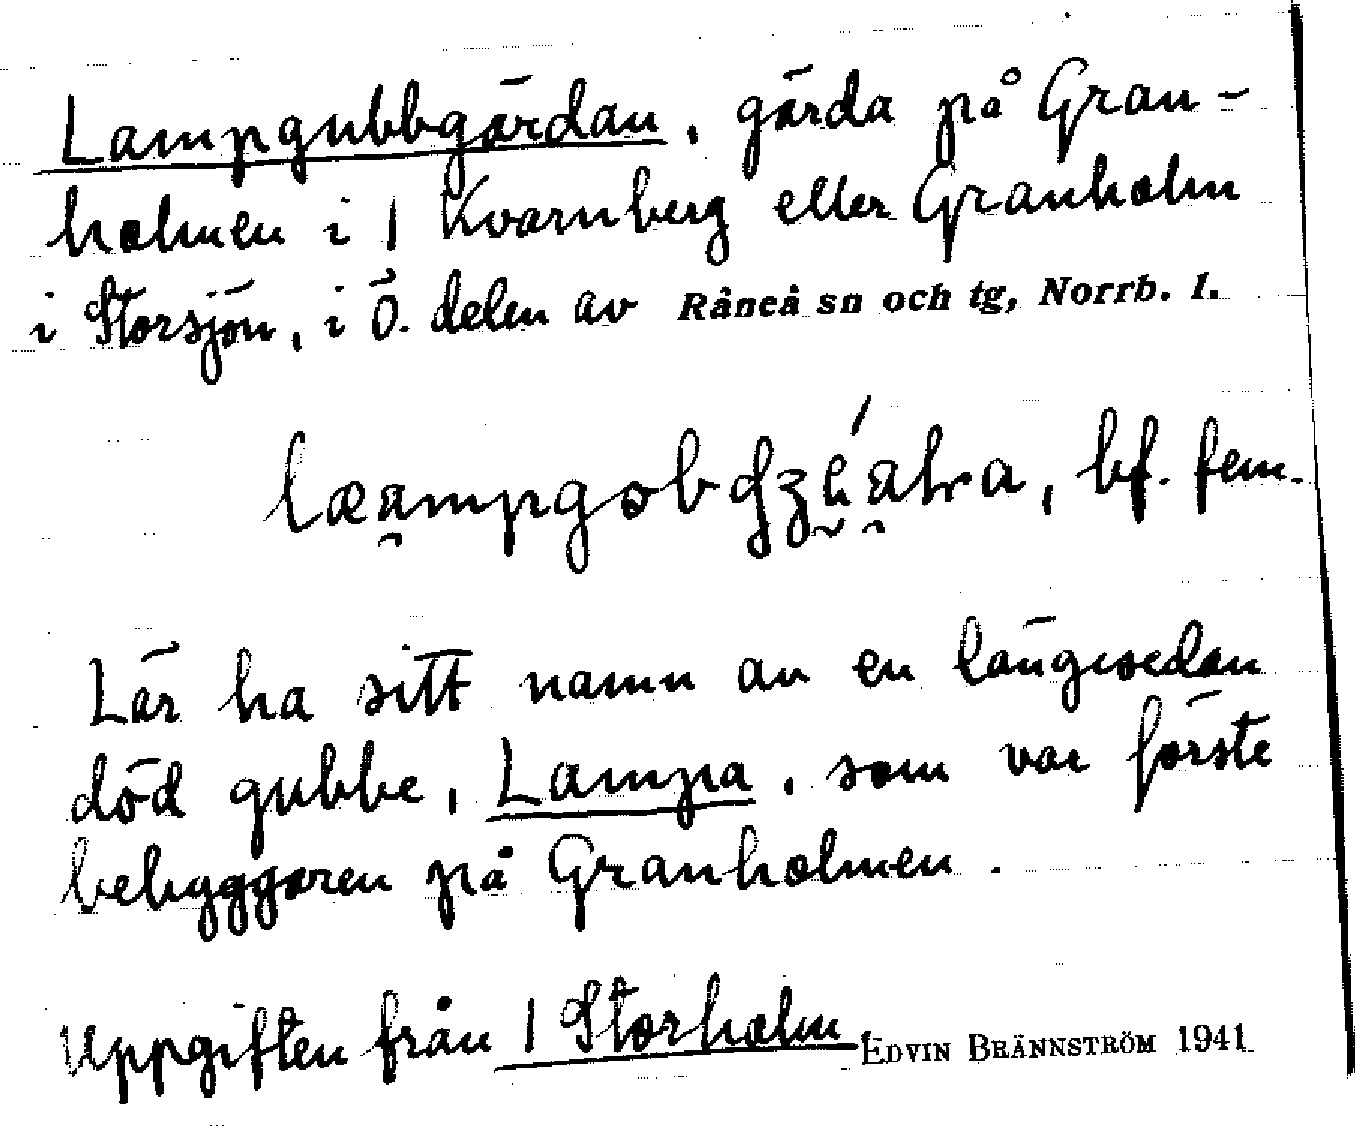 Lampgubbgärdan, gärda på Gran-
holmen i 1 Kvarnberg eller Granholm
i Storsjön, i Ö. delen av Råneå sn och tg, Norrb. l.
bf. fem.
Lär ha sitt namn av en längesedan
död gubbe, Lampa, som var förste
bebyggaren på Granholmen.
Uppgiften från 1 Storholm. EDVIN BRÄNNSTRÖM 1941